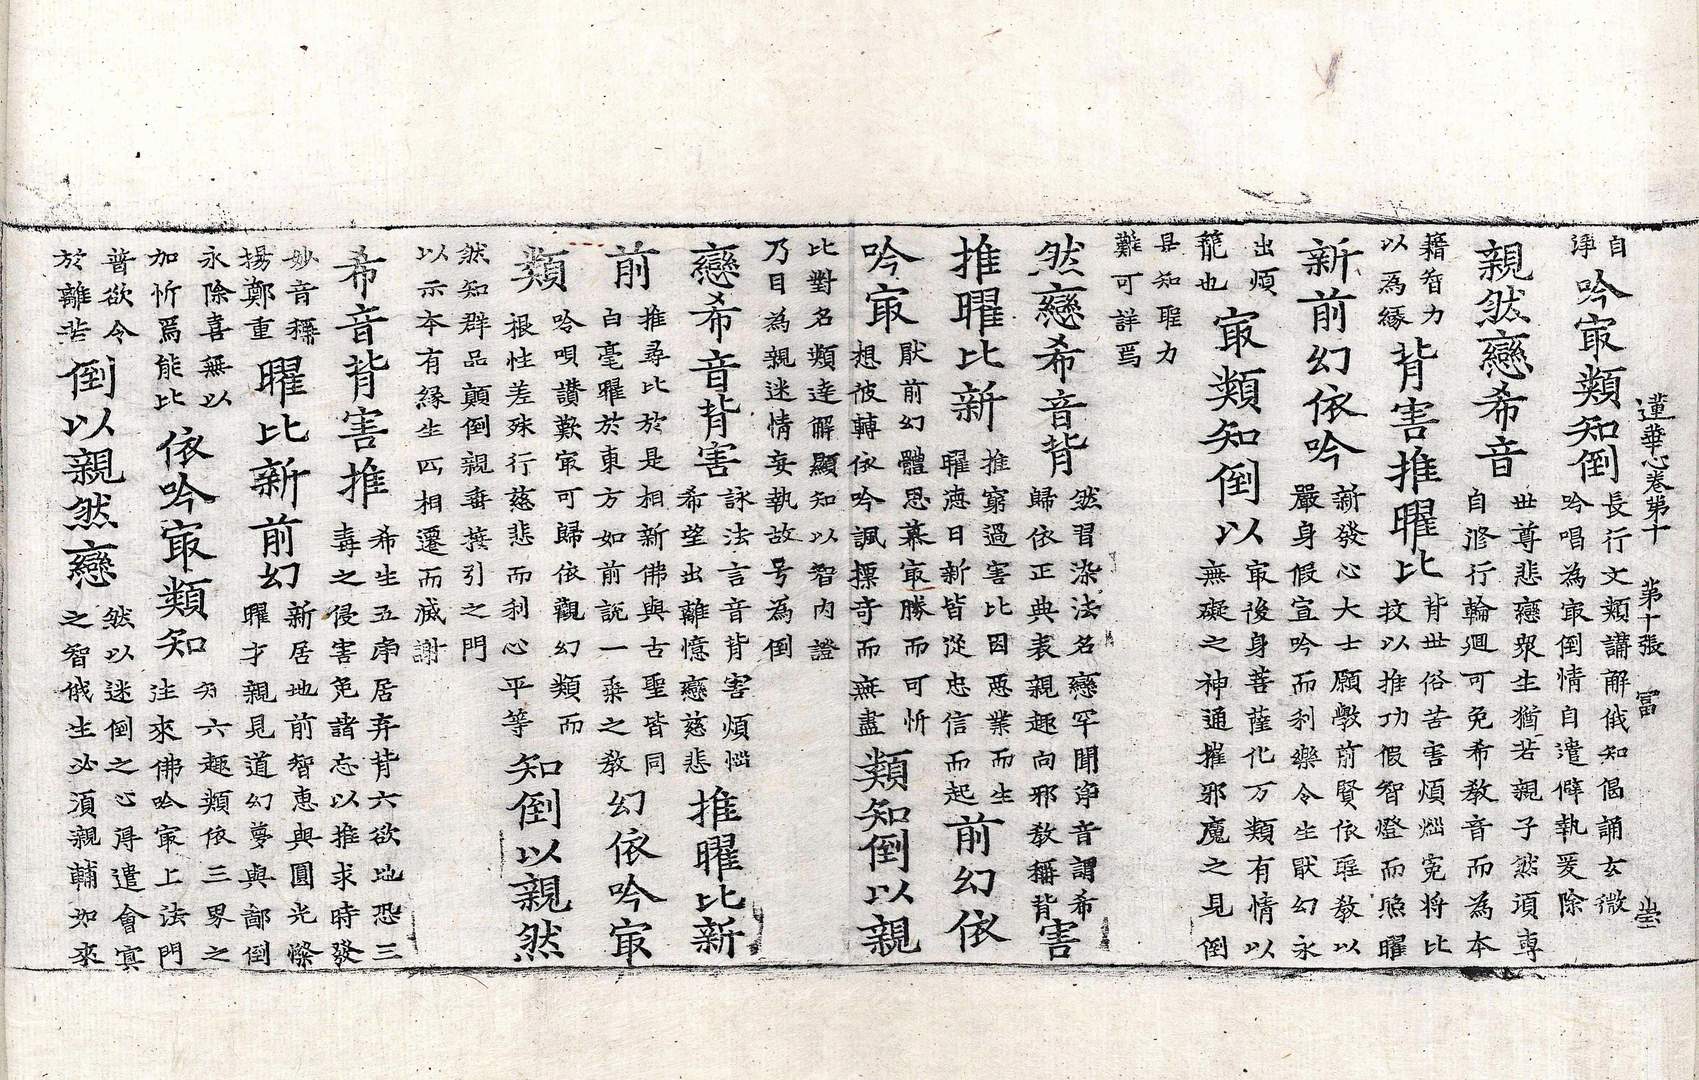 蓮華心卷第十　第十張　富　崇
自
淨
吟㝡類知倒
長行文類講解俄知偈誦玄微
吟唱為㝡倒情自遣僻執爰除
親然戀希音
世尊悲戀衆生猶若親子然湏專
自修行輪迴可免希教音而為本
藉智力
以為緣
背害推曜比
背世俗苦害煩惱㝠將比
技以推功假智燈而照曜
新前幻依吟
新發心大士願斆前賢依聖教以
嚴身假宣吟而利樂令生猒幻永
出煩
籠也
㝡類知倒以
㝡後身菩薩化万類有情以
無礙之神通摧邪魔之見倒
是知聖力
難可詳焉
然戀希音背
然習染法名戀罕聞淨音謂希
歸依正典表親趣向邪教稱背
害
推曜比新
推窮過害比因惡業而生
曜德日新皆從忠信而起
前幻依
吟㝡
猒前幻體思慕㝡勝而可忻
想彼轉依吟諷摽奇而無盡
類知倒以親
比對名類達解顯知以智內證
乃目為親迷情妄執故号為倒
戀希音背害
詠法言音背害煩惱
希望出離憶戀慈悲
推曜比新
前
推尋比於是相新佛與古聖皆同
白毫曜於東方如前說一乗之教
幻依吟㝡
類
吟唄讚歎㝡可歸依觀幻類而
根性差殊行慈悲而利心平等
知倒以親然
然知群品顛倒親垂接引之門
以示本有緣生四相遷而滅謝
希音背害推
希生五居弃背六欲地恐三
毒之侵害免諸忘以推求時發
妙音稱
揚鄭重
曜比新前幻
新居地前智惠與圓光
曜才親見道幻夢與鄙倒
永除喜無以
加忻焉能比
依吟㝡類知
知六趣類依三界之
往來佛吟㝡上法門
普欲令
於離苦
倒以親然戀
然以迷倒之心淂遣會
之智俄生必湏親輔如來